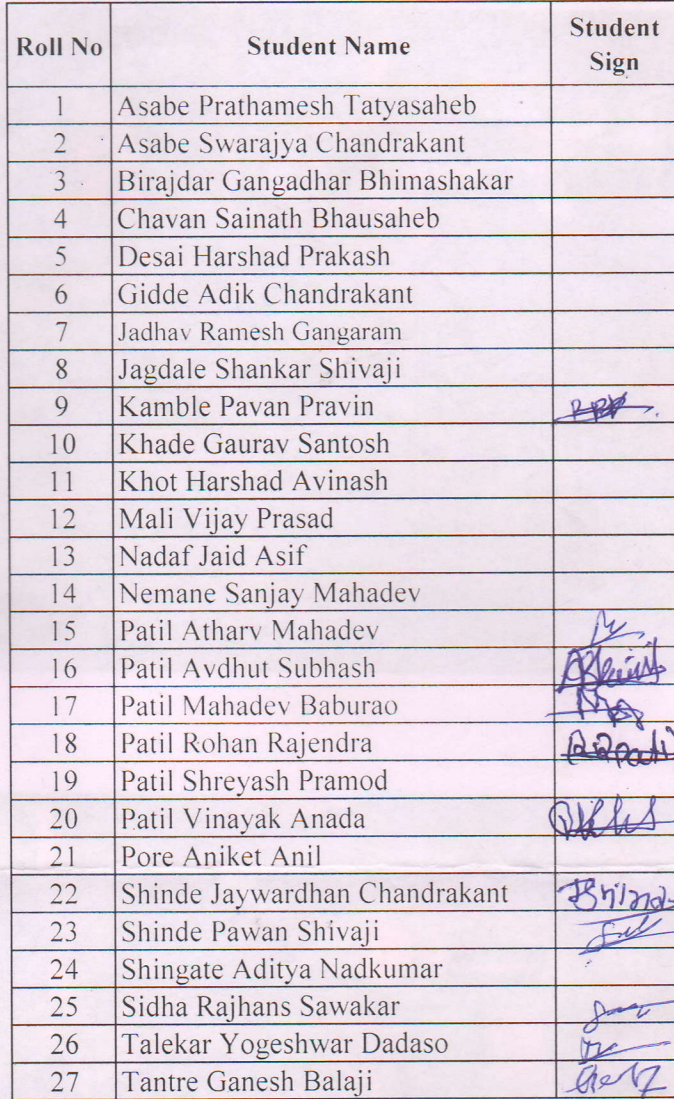 Roll No Student Name Student Sign
1 Asabe Prathamesh Tatyasaheb
2 Asabe Swarajya Chandrakant
3 Birajdar Gangadhar Bhimashakar
4 Chavan Sainath Bhausaheb
5 Desai Harshad Prakash
6 Gidde Adik Chandrakant
7 Jadhav Ramesh Gangaram
8 Jagdale Shankar Shivaji
9 Kamble Pavan Pravin
10 Khade Gaurav Santosh
11 Khot Harshad Avinash
12 Mali Vijay Prasad
13 Nadaf Jaid Asif
14 Nemane Sanjay Mahadev
15 Patil Atharv Mahadev
16 Patil Avdhut Subhash
17 Patil Mahadev Baburao
18 Patil Rohan Rajendra
19 Patil Shreyash Pramod
20 Patil Vinayak Anada
21 Pore Aniket Anil
22 Shinde Jaywardhan Chandrakant
23 Shinde Pawan Shivaji
24 Shingate Aditya Nadkumar
25 Sidha Rajhans Sawakar
26 Talekar Yogeshwar Dadaso
27 Tantre Ganesh Balaji